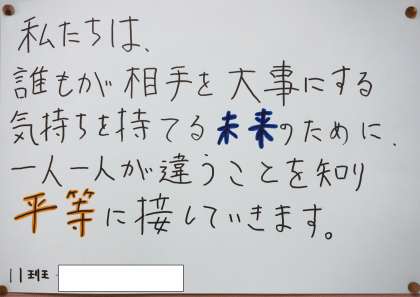 私たちは、
誰もが相手を大事にする
気持ちを持てる未来のために、
一人一人が違うことを知り
平等に接していきます。
11班